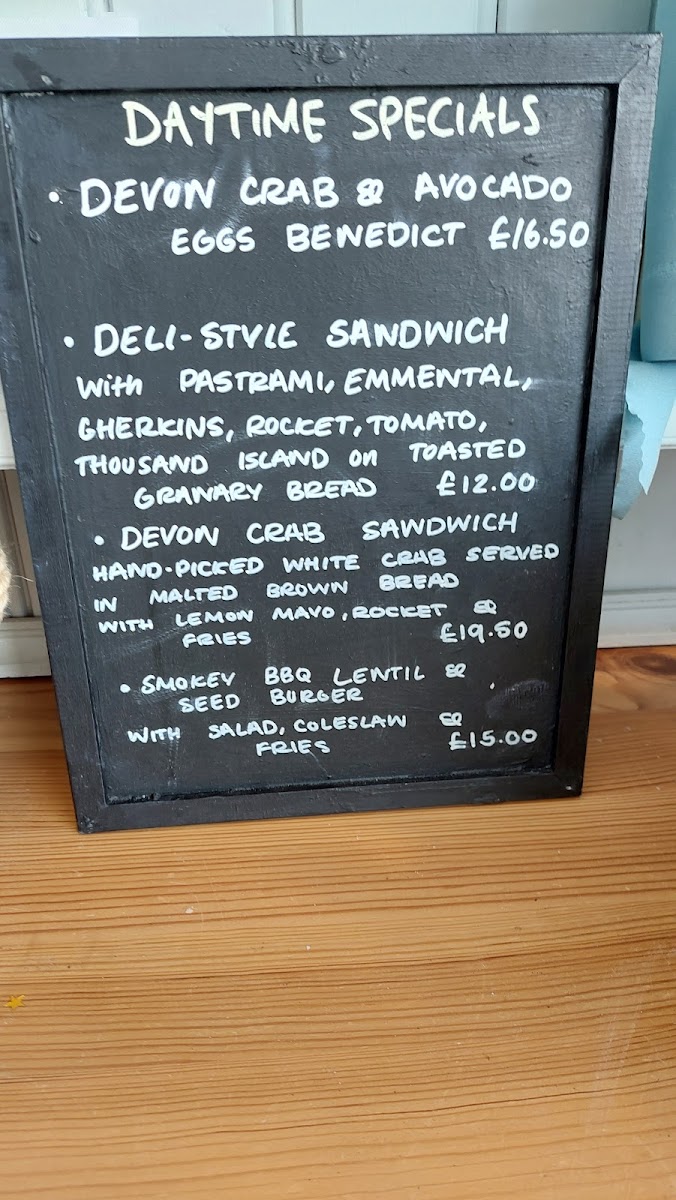 DAYTIME SPECIALS
• DEVON CRAB & AVOCADO
EGGS BENEDICT £16.50
• DELI-STYLE SANDWICH
With PASTRAMI, EMMENTAL,
GHERKINS, ROCKET, TOMATO,
THOUSAND ISLAND on TOASTED
GRANARY BREAD £12.00
• DEVON CRAB SANDWICH
HAND-PICKED WHITE CRAB SERVED
IN MALTED BROWN BREAD
WITH LEMON MAYO, ROCKET &
FRIES £19.50
• SMOKEY BBQ LENTIL &
SEED BURGER
WITH SALAD, COLESLAW &
FRIES £15.00